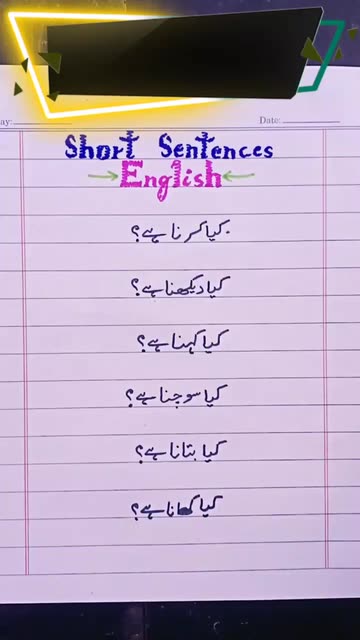 ay:
Date:
Short Sentences
English
کیا کرنا ہے؟
کیا دیکھنا ہے؟
کیا کہنا ہے؟
کیا سوچنا ہے؟
کیا بتانا ہے؟
کیا کھانا ہے؟